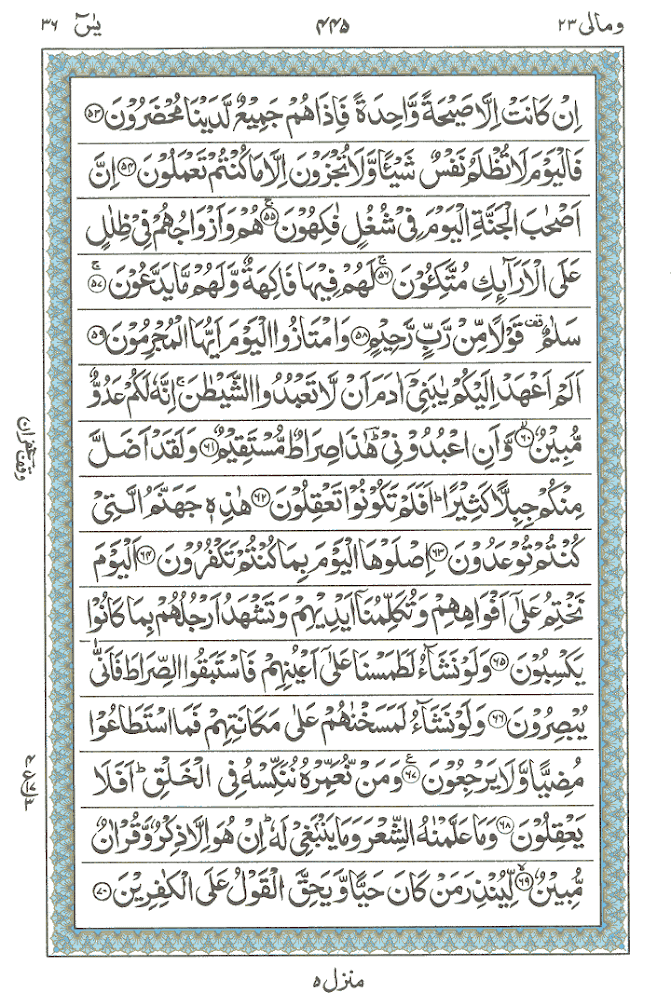 ومالی ٢٣
۴۴۵
یٰسٓ ٣٦
اِنْ كَانَتْ اِلَّا صَیْحَةً وَّاحِدَةً فَاِذَا هُمْ جَمِیْعٌ لَّدَیْنَا مُحْضَرُوْنَ ۵۳
فَالْیَوْمَ لَا تُظْلَمُ نَفْسٌ شَیْـًٔا وَّلَا تُجْزَوْنَ اِلَّا مَا كُنْتُمْ تَعْمَلُوْنَ ۵۴ اِنَّ
اَصْحٰبَ الْجَنَّةِ الْیَوْمَ فِیْ شُغُلٍ فٰكِهُوْنَ ۵۵ۚ هُمْ وَاَزْوَاجُهُمْ فِیْ ظِلٰلٍ
عَلَی الْاَرَآىِٕكِ مُتَّكِـُٔوْنَ ۵۶ۚ لَهُمْ فِیْهَا فَاكِهَةٌ وَّلَهُمْ مَّا یَدَّعُوْنَ ۵۷ۚ
سَلٰمٌ قف قَوْلًا مِّنْ رَّبٍّ رَّحِیْمٍ ۵۸ وَامْتَازُوا الْیَوْمَ اَیُّهَا الْمُجْرِمُوْنَ ۵۹
اَلَمْ اَعْهَدْ اِلَیْكُمْ یٰبَنِیْۤ اٰدَمَ اَنْ لَّا تَعْبُدُوا الشَّیْطٰنَ ۚ اِنَّهٗ لَكُمْ عَدُوٌّ
مُّبِیْنٌ ۶۰ۙ وَّاَنِ اعْبُدُوْنِیْ ؔؕ هٰذَا صِرَاطٌ مُّسْتَقِیْمٌ ۶۱ وَلَقَدْ اَضَلَّ
مِنْكُمْ جِبِلًّا كَثِیْرًا ؕ اَفَلَمْ تَكُوْنُوْا تَعْقِلُوْنَ ۶۲ هٰذِهٖ جَهَنَّمُ الَّتِیْ
كُنْتُمْ تُوْعَدُوْنَ ۶۳ اِصْلَوْهَا الْیَوْمَ بِمَا كُنْتُمْ تَكْفُرُوْنَ ۶۴ اَلْیَوْمَ
نَخْتِمُ عَلٰۤی اَفْوَاهِهِمْ وَتُكَلِّمُنَاۤ اَیْدِیْهِمْ وَتَشْهَدُ اَرْجُلُهُمْ بِمَا كَانُوْا
یَكْسِبُوْنَ ۶۵ وَلَوْ نَشَآءُ لَطَمَسْنَا عَلٰۤی اَعْیُنِهِمْ فَاسْتَبَقُوا الصِّرَاطَ فَاَنّٰی
یُبْصِرُوْنَ ۶۶ وَلَوْ نَشَآءُ لَمَسَخْنٰهُمْ عَلٰی مَكَانَتِهِمْ فَمَا اسْتَطَاعُوْا
مُضِیًّا وَّلَا یَرْجِعُوْنَ ۶۷ وَمَنْ نُّعَمِّرْهُ نُنَكِّسْهُ فِی الْخَلْقِ ؕ اَفَلَا
یَعْقِلُوْنَ ۶۸ وَمَا عَلَّمْنٰهُ الشِّعْرَ وَمَا یَنْۢبَغِیْ لَهٗ ؕ اِنْ هُوَ اِلَّا ذِكْرٌ وَّقُرْاٰنٌ
مُّبِیْنٌ ۶۹ۙ لِّیُنْذِرَ مَنْ كَانَ حَیًّا وَّیَحِقَّ الْقَوْلُ عَلَی الْكٰفِرِیْنَ ۷۰
وقف غفران
منزل ۵